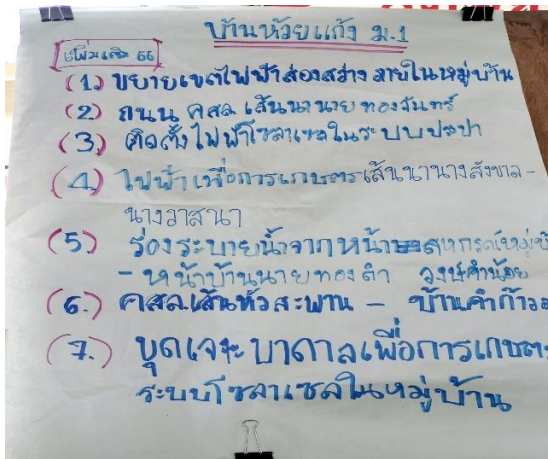 บ้านห้วยแก้ง ม.1
เพิ่มเติม 66
(1) ขยายเขตไฟฟ้าส่องสว่าง ภายในหมู่บ้าน
(2) ถนน คสล เส้นนานายทองจันทร์
(3) ติดตั้งไฟฟ้าโซลาเซลในระบบปะปา
(4) ไฟฟ้าเพื่อการเกษตรเส้นนานางสังขาล -
นางวาสนา
(5) ร่องระบายน้ำจากหน้าสหกรณ์หมู่บ้
- หน้าบ้านนายทองดำ วงษ์คำน้อย
(6.) คสลเส้นหัวสะพาน - บ้านคำก้าว
(7.) ขุดเจาะบาดาลเพื่อการเกษตร
ระบบโซลาเซลในหมู่บ้าน